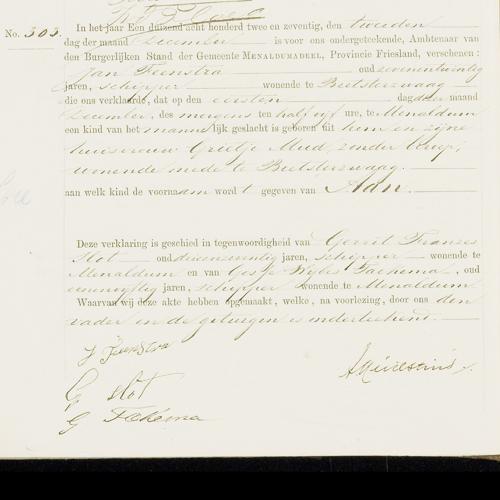 No. 303. In het jaar Een duizend acht honderd twee en zeventig, den tweeden
dag der maand December is voor ons ondergeteekende, Ambtenaar van
den Burgerlijken Stand der Gemeente MENALDUMADEEL, Provincie Friesland, verschenen:
Jan Feenstra oud zevenentwintig
jaren, schipper wonende te Beetsterzwaag
die ons verklaarde, dat op den eersten dag dezer maand
December, des morgens ten half vijf ure, te Menaldum
een kind van het mannelijk geslacht is geboren uit hem en zijne
huisvrouw Grietje Mud, zonder beroep,
wonende mede te Beetsterzwaag.
aan welk kind de voornaam wordt gegeven van
Deze verklaring is geschied in tegenwoordigheid van Gerrit Franzes
Slot oud drieenzeventig jaren, schipper wonende te
Menaldum en van Gosse Wybes Taekema, oud
eenenvijftig jaren, schipper wonende te Menaldum
Waarvan wij deze akte hebben opgemaakt, welke, na voorlezing, door ons den
vader en de getuigen is onderteekend.
J Feenstra
G Slot
G Taekema